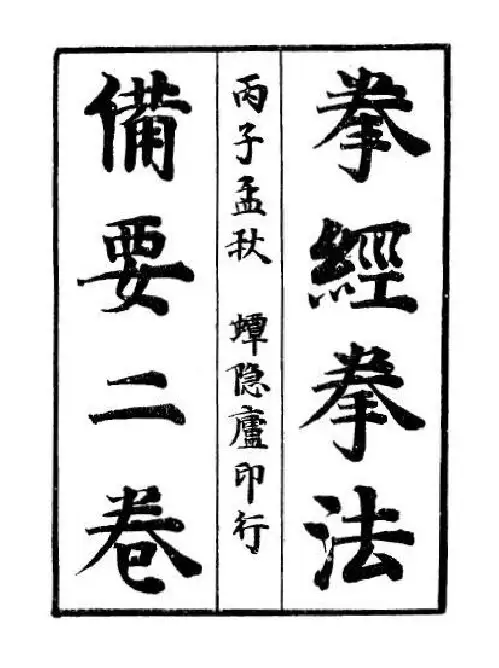 拳經拳法
丙子孟秋 蟫隐廬印行
備要二卷